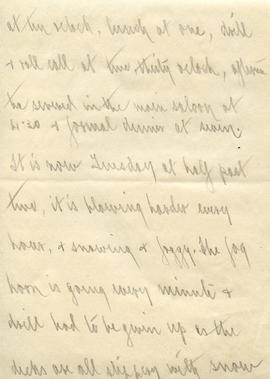 at ten oclock, lunch at one, drill
& roll call at two, thirty oclock, afternoon
tea served in the main saloon at
4:30 & formal dinner at seven.
It is now Tuesday at half past
two, it is blowing harder every
hour, & snowing & foggy. The fog
horn is going every minute &
drill had to be given up as the
decks are all slippery with snow